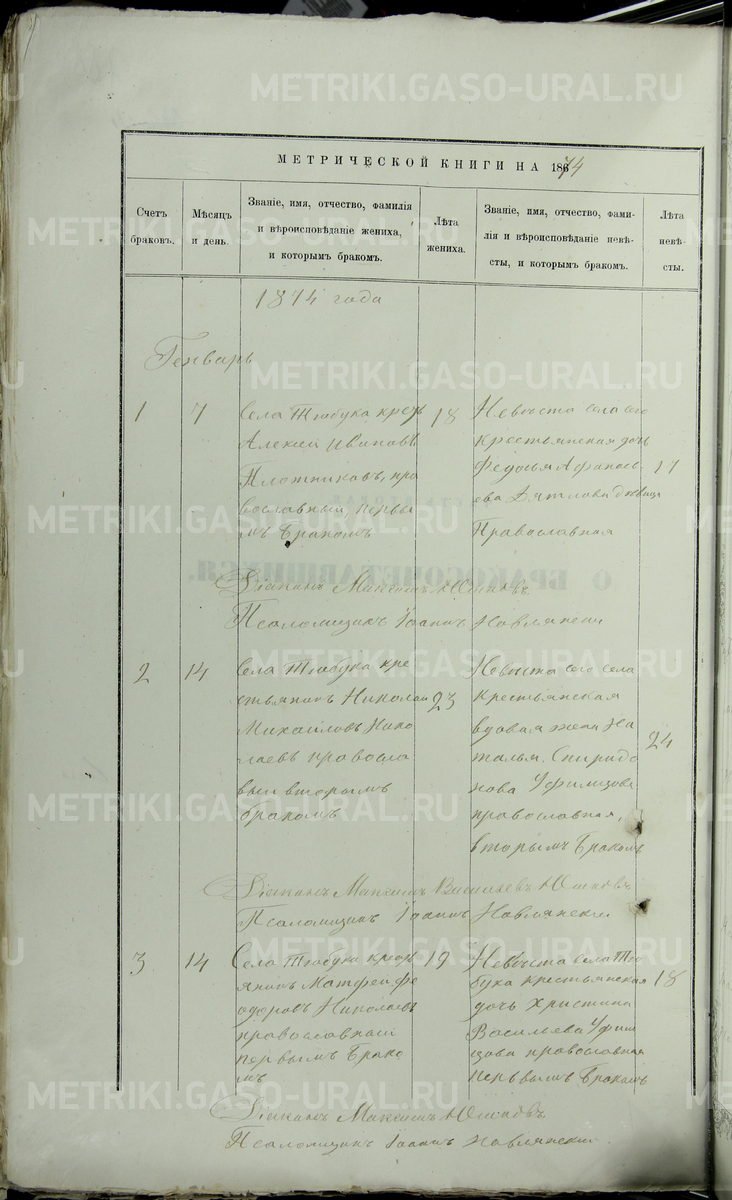 МЕТРИЧЕСКОЙ КНИГИ НА 1874
Счетъ браковъ.
Мѣсяцъ и день.
Званіе, имя, отчество, фамилія
и вѣроисповѣданіе жениха,
и которымъ бракомъ.
Лѣта жениха.
Званіе, имя, отчество, фами-
лія и вѣроисповѣданіе невѣ-
сты, и которымъ бракомъ.
Лѣта невѣ-
сты.
1874 года
Генварь
1
7
Села Тюбука крест
Алексій Ивановъ
Плотниковъ, пра
вославный, первы
мъ бракомъ
18
Невѣста села сего
крестьянская дочь
Федосья Афанась
ева Дятлова дѣвица
Православная
17
Діаконъ Максимъ Юшковъ
Псаломщикъ Іоаннъ Навлянскій
2
14
Села Тюбука кре
стьянинъ Николай
Михайловъ Нико
лаевъ правосла
вный вторымъ
бракомъ
23
Невѣста сего села
крестьянская
вдовая жена На
талья Спиридо
нова Уфимцова
православная,
вторымъ бракомъ
24
Діаконъ Максимъ Васильевъ Юшковъ
Псаломщикъ Іоаннъ Навлянскій
3
14
Села Тюбука кресть
янинъ Матфей Фе
одоровъ Николаевъ
православный
первымъ брако
мъ
19
Невѣста села Тю
бука крестьянская
дочь Христина
Васильева Уфим
цова православная
первымъ бракомъ
18
Діаконъ Максимъ Юшковъ
Псаломщикъ Іоаннъ Навлянскій
METRIKI.GASO-URAL.RU